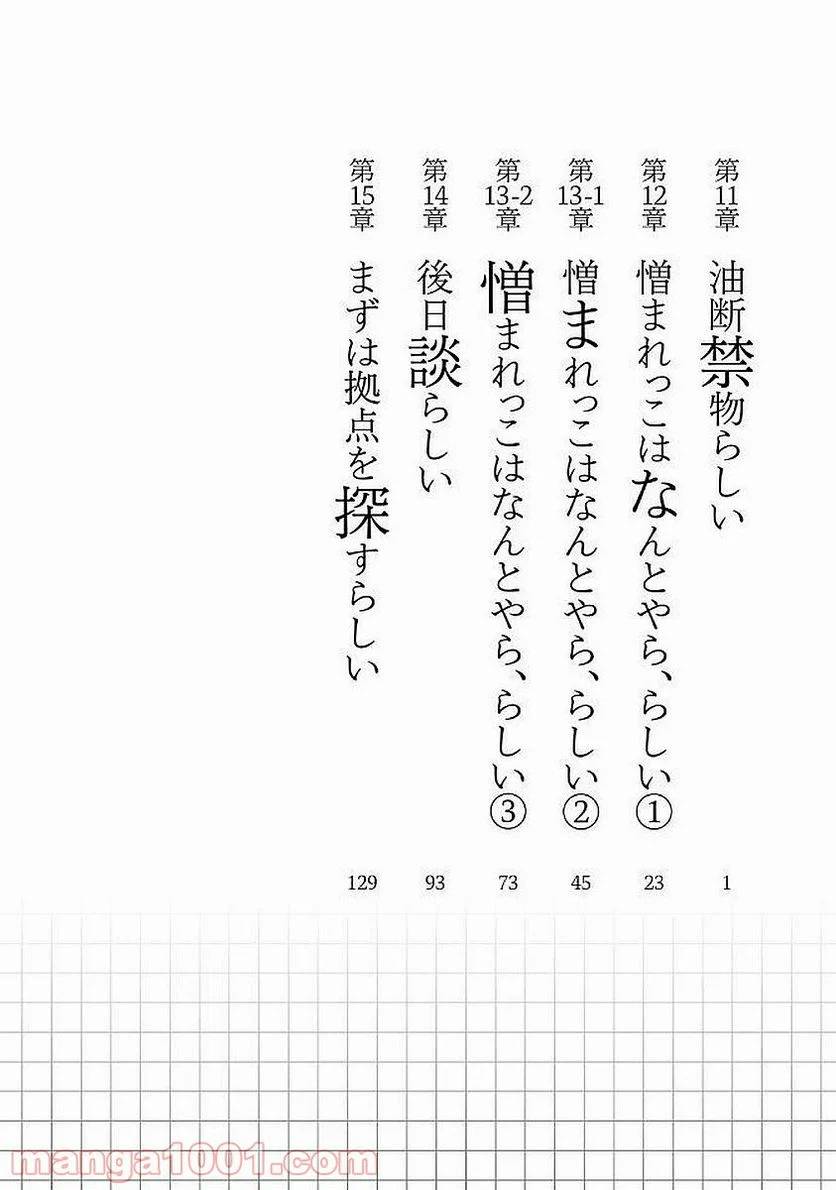 第11章 油断禁物らしい 1
第12章 憎まれっこはなんとやら、らしい① 23
第13-1章 憎まれっこはなんとやら、らしい② 45
第13-2章 憎まれっこはなんとやら、らしい③ 73
第14章 後日談らしい 93
第15章 まずは拠点を探すらしい 129
manga1001.com